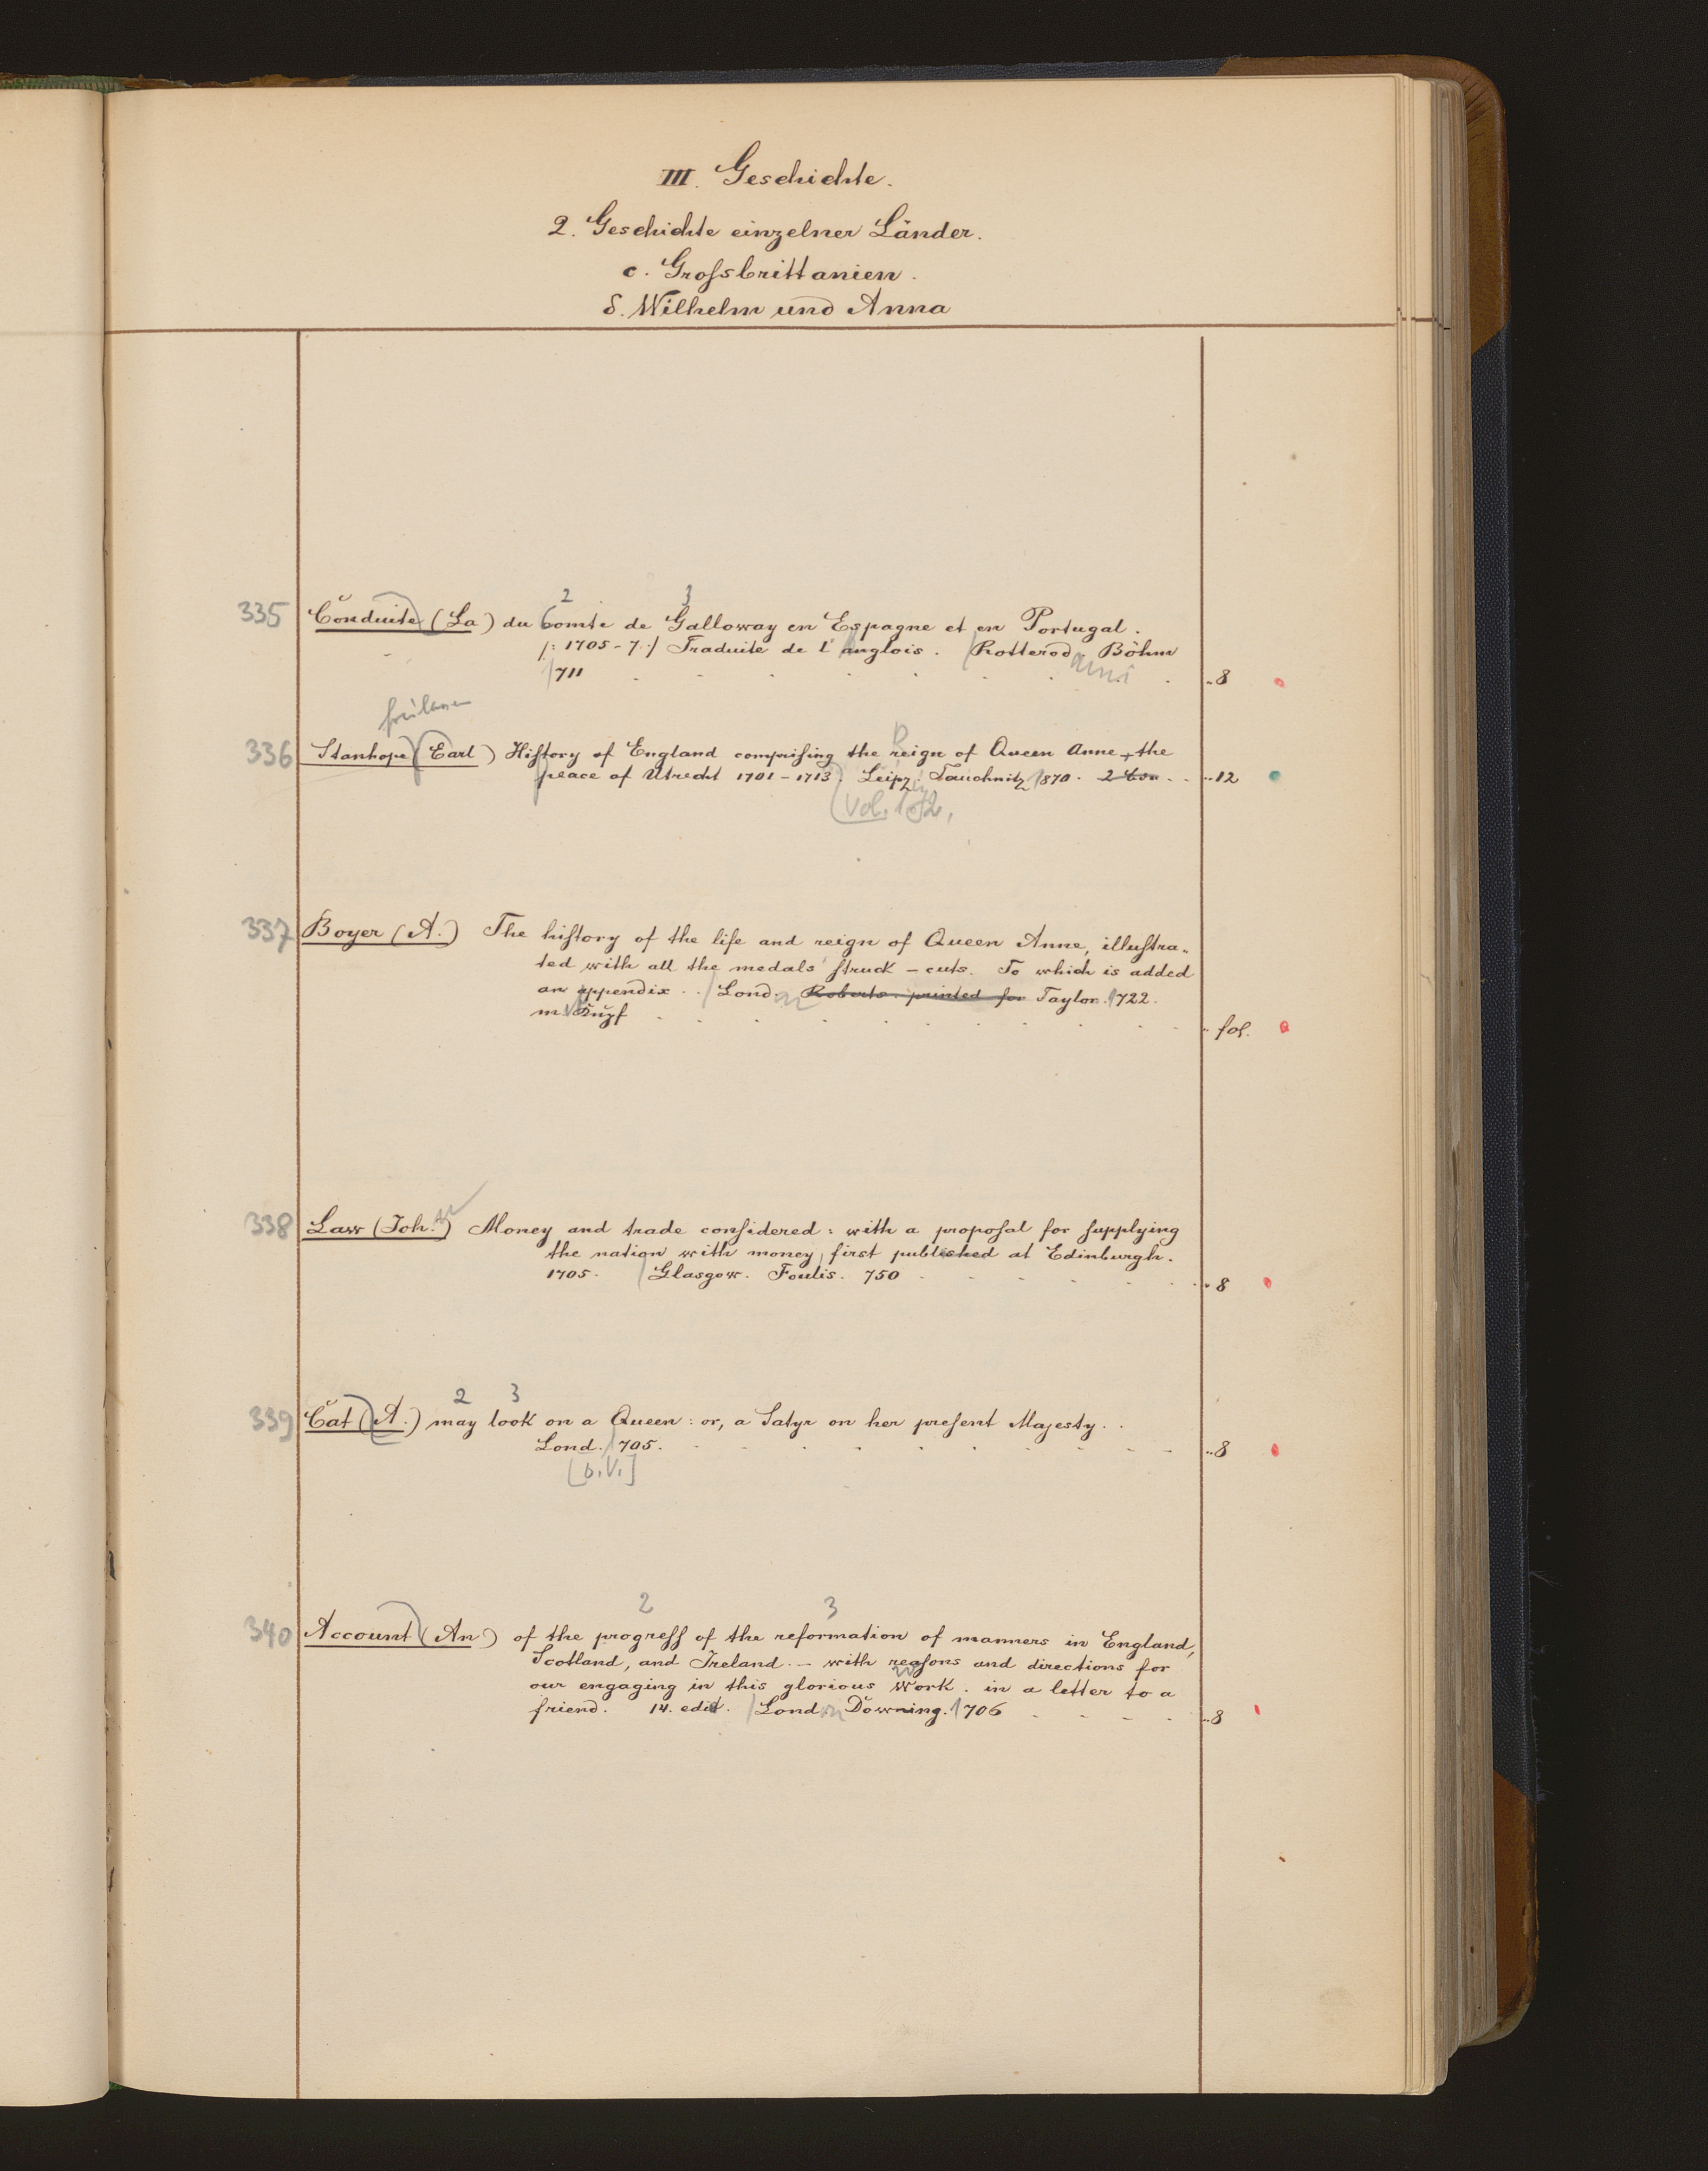 III. Geschichte.
2. Geschichte einzelner Länder.
c. Grossbrittanien.
δ. Wilhelm und Anna
2 3
335 Conduite (La) du Comte de Galloway en Espagne et en Portugal.
/: 1705-7 :/ Traduite de l'anglois. Rotterod. Böhm
711 8
336 Stanhope (Earl) History of England comprising the reign of Queen Anne, the
peace of Utrecht 1701-1713. Leipz. Tauchnitz 1870. 2 12
(Vol. 1. 2,
337 Boyer (A.) The history of the life and reign of Queen Anne, illustra-
ted with all the medals struck - cuts. To which is added
an appendix. Lond. Roberts. printed for Taylor. 1722.
m. Kupf fol.
338 Law (Joh.) Money and trade considered: with a proposal for supplying
the nation with money, first published at Edinburgh.
1705. Glasgow. Foulis. 750 8
2 3
339 Cat (A.) may look on a Queen: or, a Satyr on her present Majesty.
Lond. 1705. 8
[o. V.]
2 3
340 Account (An) of the progress of the reformation of manners in England,
Scotland, and Ireland. - with reasons and directions for
our engaging in this glorious work. in a letter to a
friend. 14. edit. Lond. Downing. 1706 8